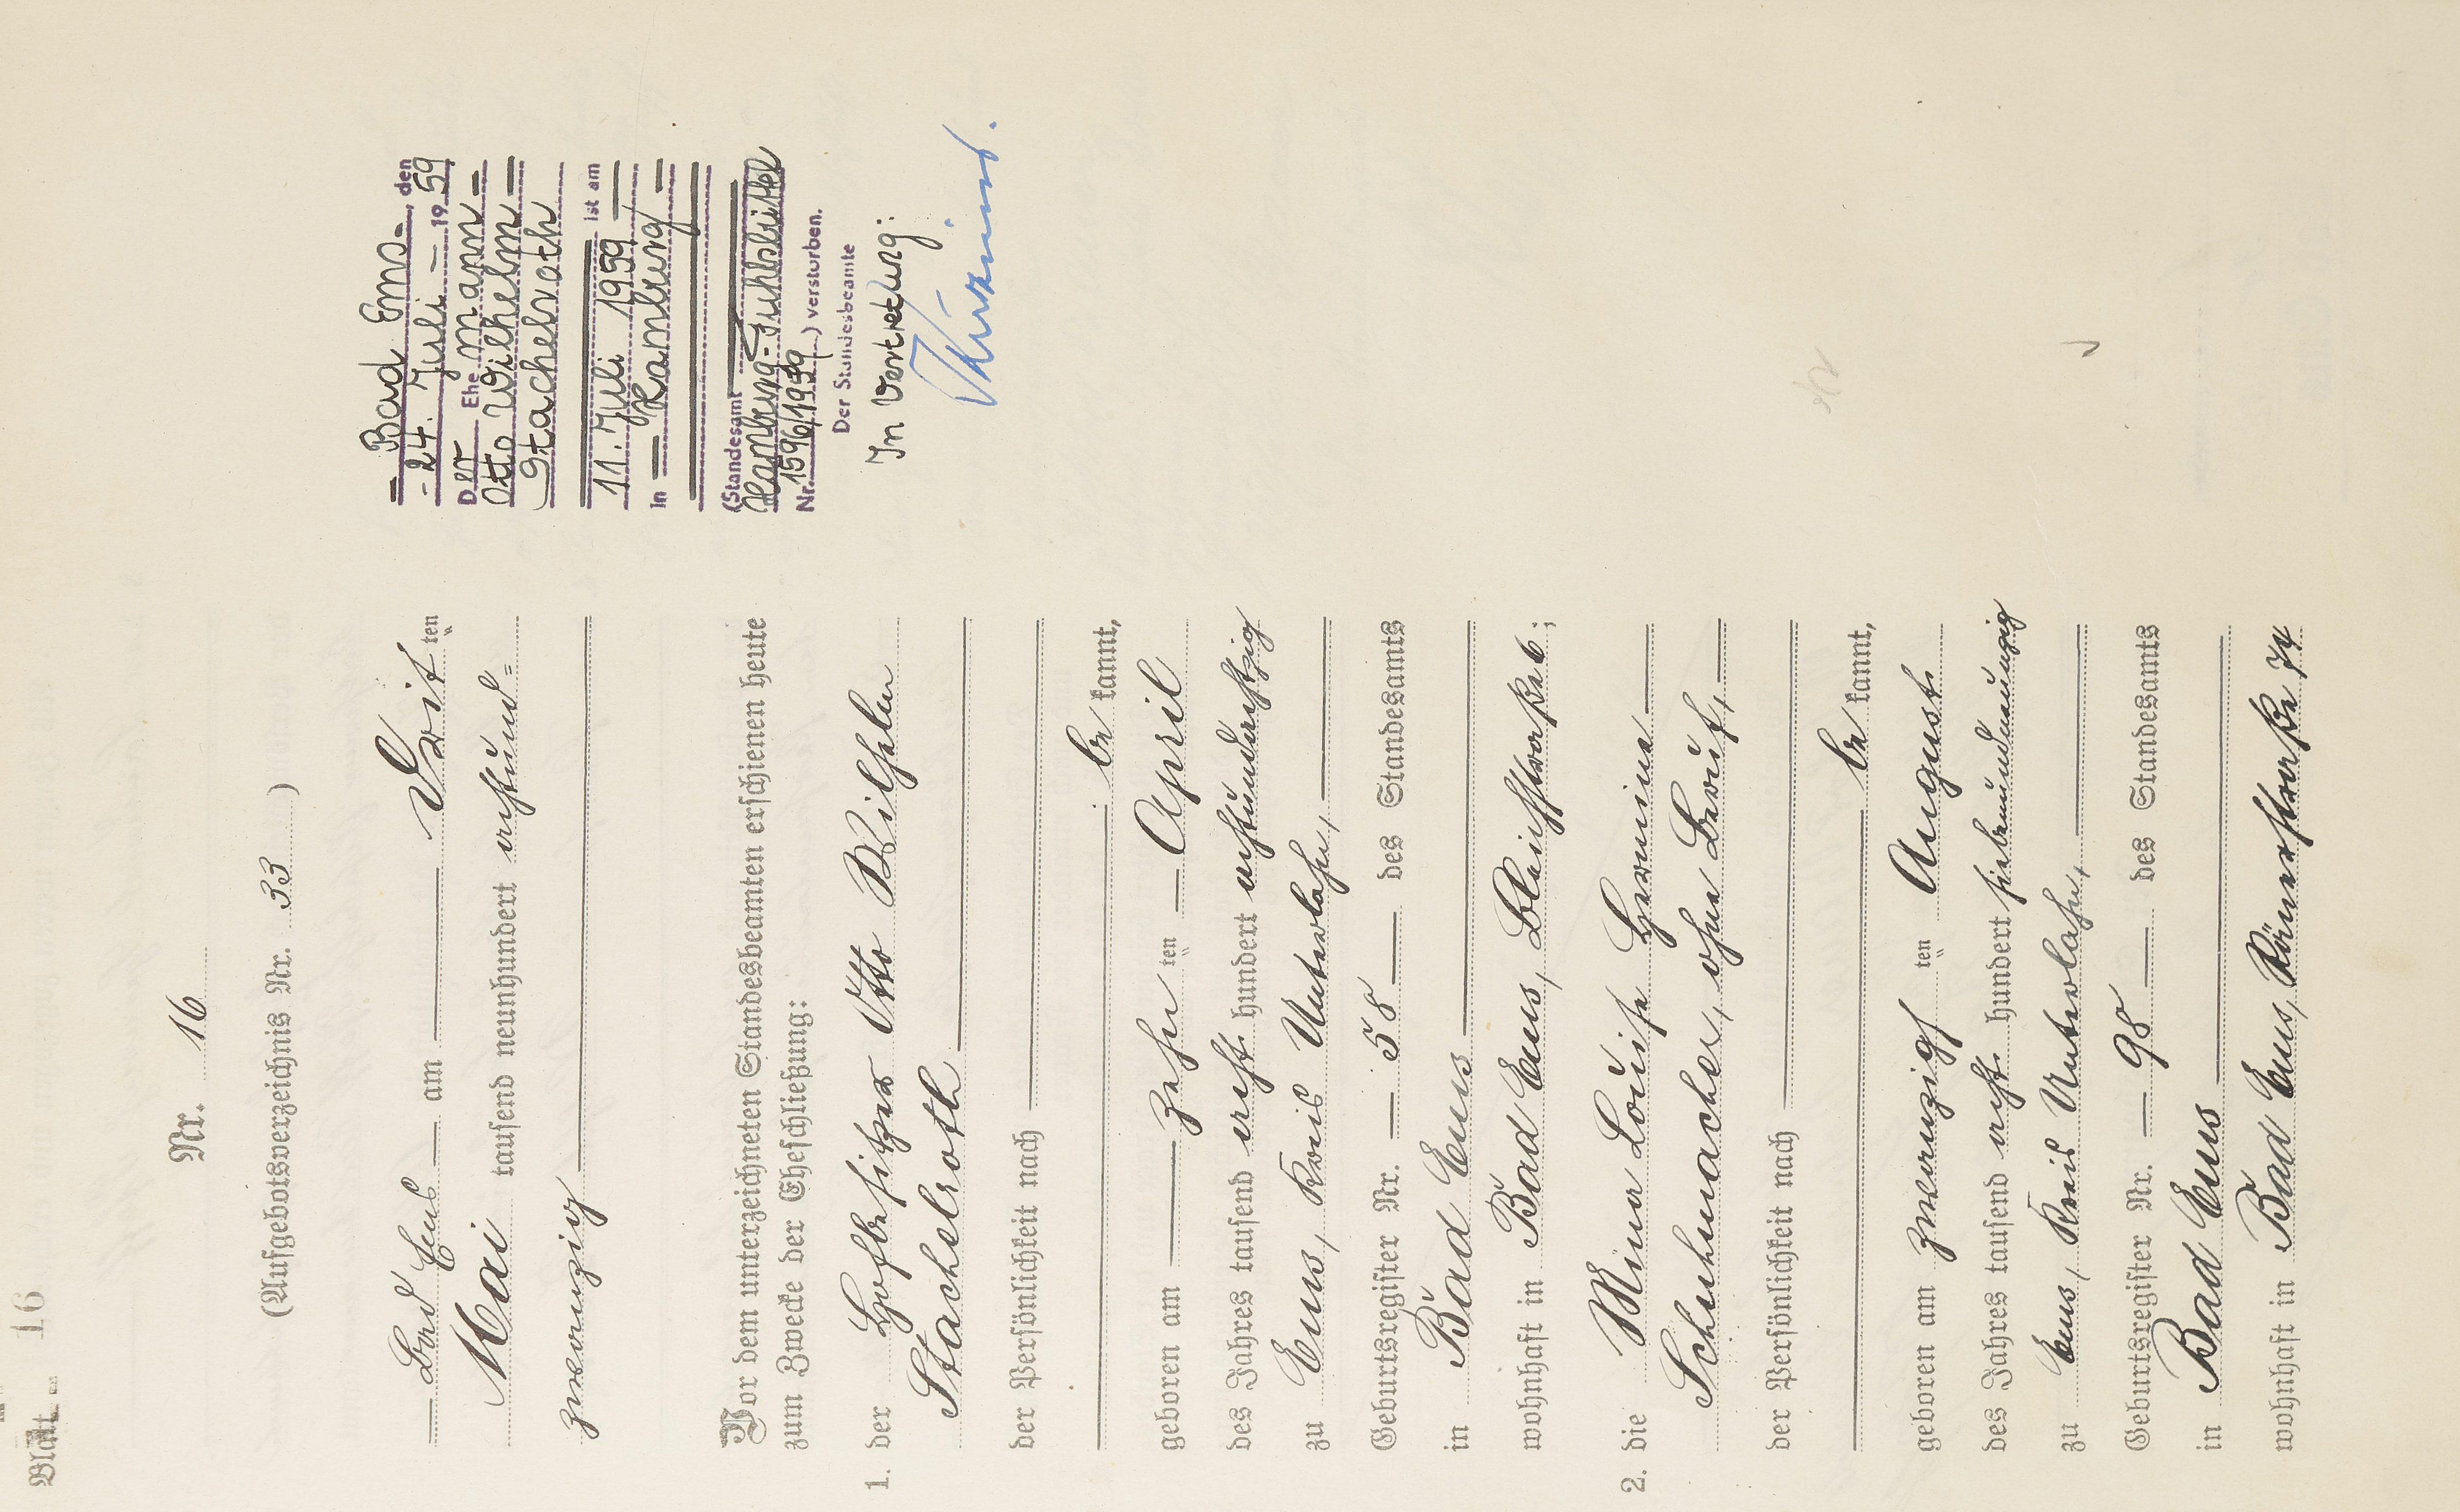 Blatt 16
Nr. 16
(Aufgebotsverzeichnis Nr. 33 )
Bad Ems am Drit ten
Mai tausend neunhundert achtund=
zwanzig
Vor dem unterzeichneten Standesbeamten erschienen heute
zum Zwecke der Eheschließung:
1. der Hofbesitzer Otto Wilhelm
Stachelroth
der Persönlichkeit nach
be kannt,
geboren am zehn ten April
des Jahres tausend acht hundert achtundachtzig
zu Ems, Kreis Unterlahn,
Geburtsregister Nr. 58 des Standesamts
in Bad Ems
wohnhaft in Bad Ems, Bleichstraße 6 ;
2. die Mina Louise Hermine
Schuhmacher, ohne Beruf,
der Persönlichkeit nach
be kannt,
geboren am zwanzigs ten August
des Jahres tausend acht hundert siebenundneunzig
zu Ems, Kreis Unterlahn,
Geburtsregister Nr. 98 des Standesamts
in Bad Ems
wohnhaft in Bad Ems, Römerstraße 74
Bad Ems, den
24. Juli 1959
Der Ehemann
Otto Wilhelm
Stachelroth
ist am
11. Juli 1959
in Hamburg
(Standesamt
Hamburg-Fuhlsbüttel
Nr. 1596/1959) verstorben.
Der Standesbeamte
In Vertretung: